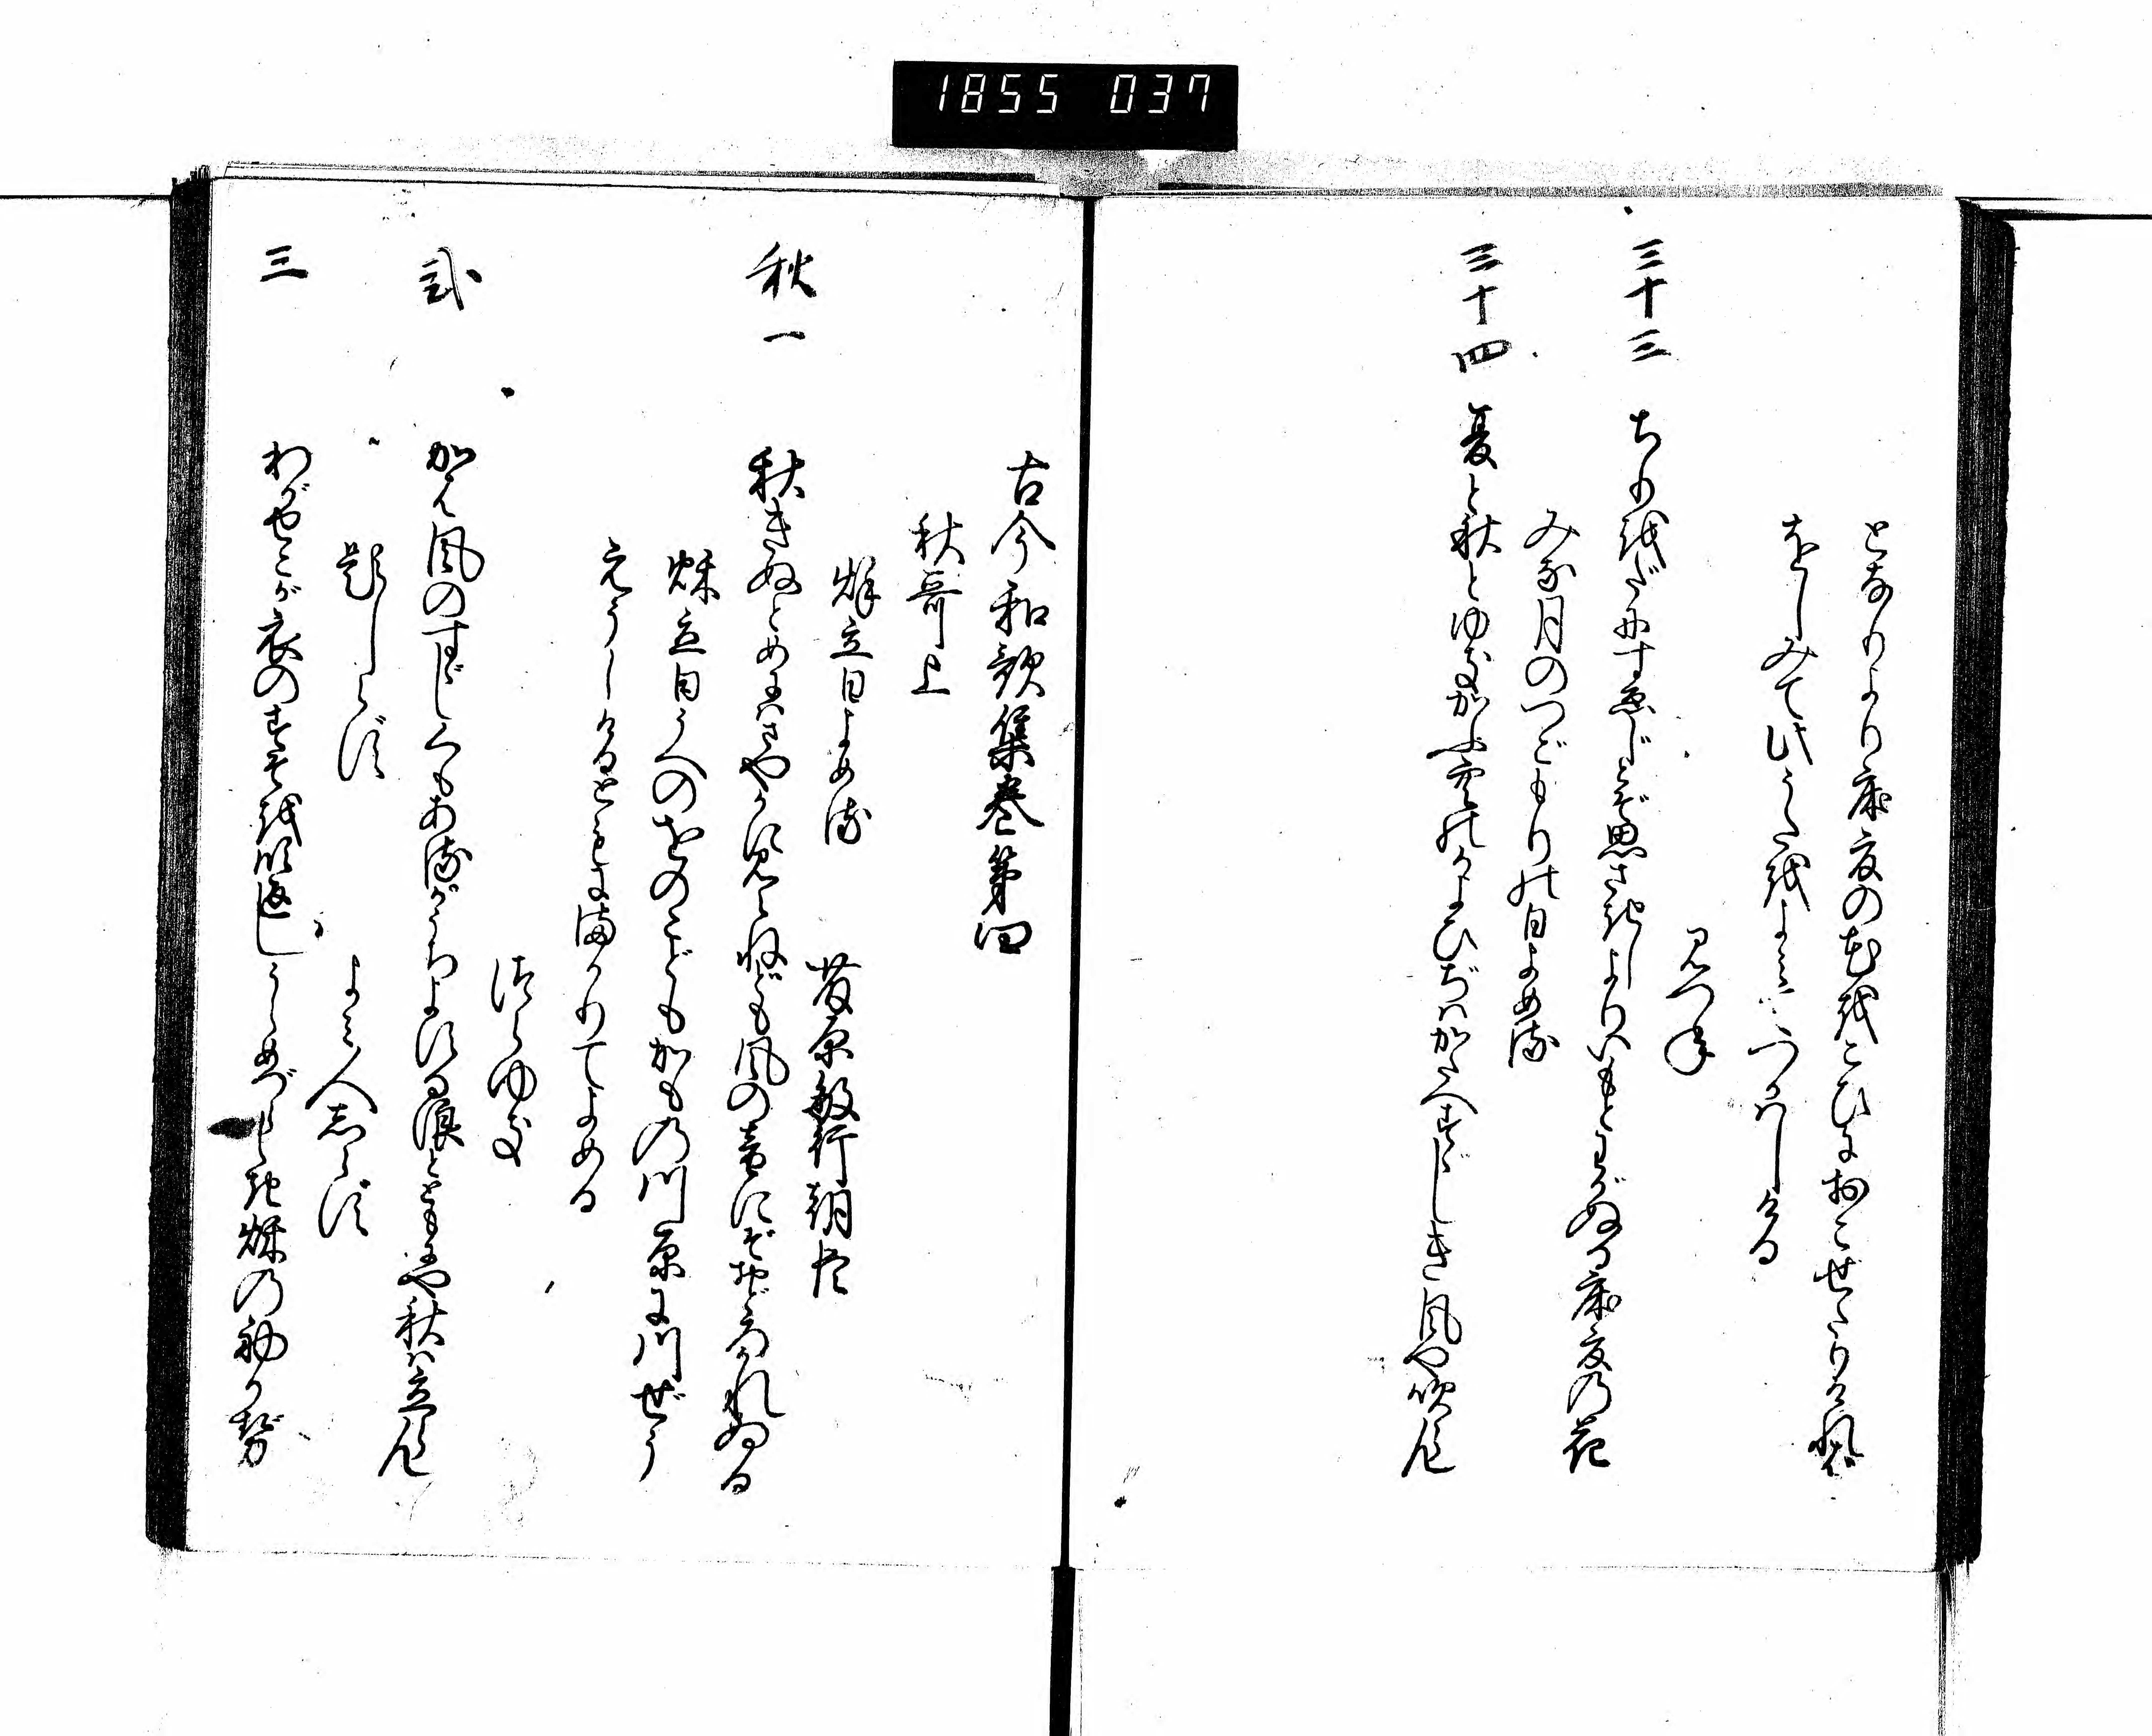 1855 037
となりより床夏の花をこひにおこせたりければ
をしみて此うたをよみてつかはしける
みつね
三十三 ちりをだにすゑじとぞ思さきしよりいもとわがぬる床夏の花
みな月のつごもりの日よめる
三十四 夏と秋とゆきかふ空のかよひぢはかたへすずしき風や吹らん
古今和歌集巻第四
秋哥上
秌立日よめる
藤原敏行朝臣
秋一 秋きぬとめにはさやかに見えねども風の音にぞおどろかれぬる
秌立日うへのをのこどもかもの川原に川ぜう
えうしけるともにまかりてよめる
つらゆき
弐 かは風のすずしくもあるかうちよする浪とともにや秋は立らん
題しらず
よみ人志らず
三 わがせこが衣のすそを吹返しうらめづらしき秌の初かぜ